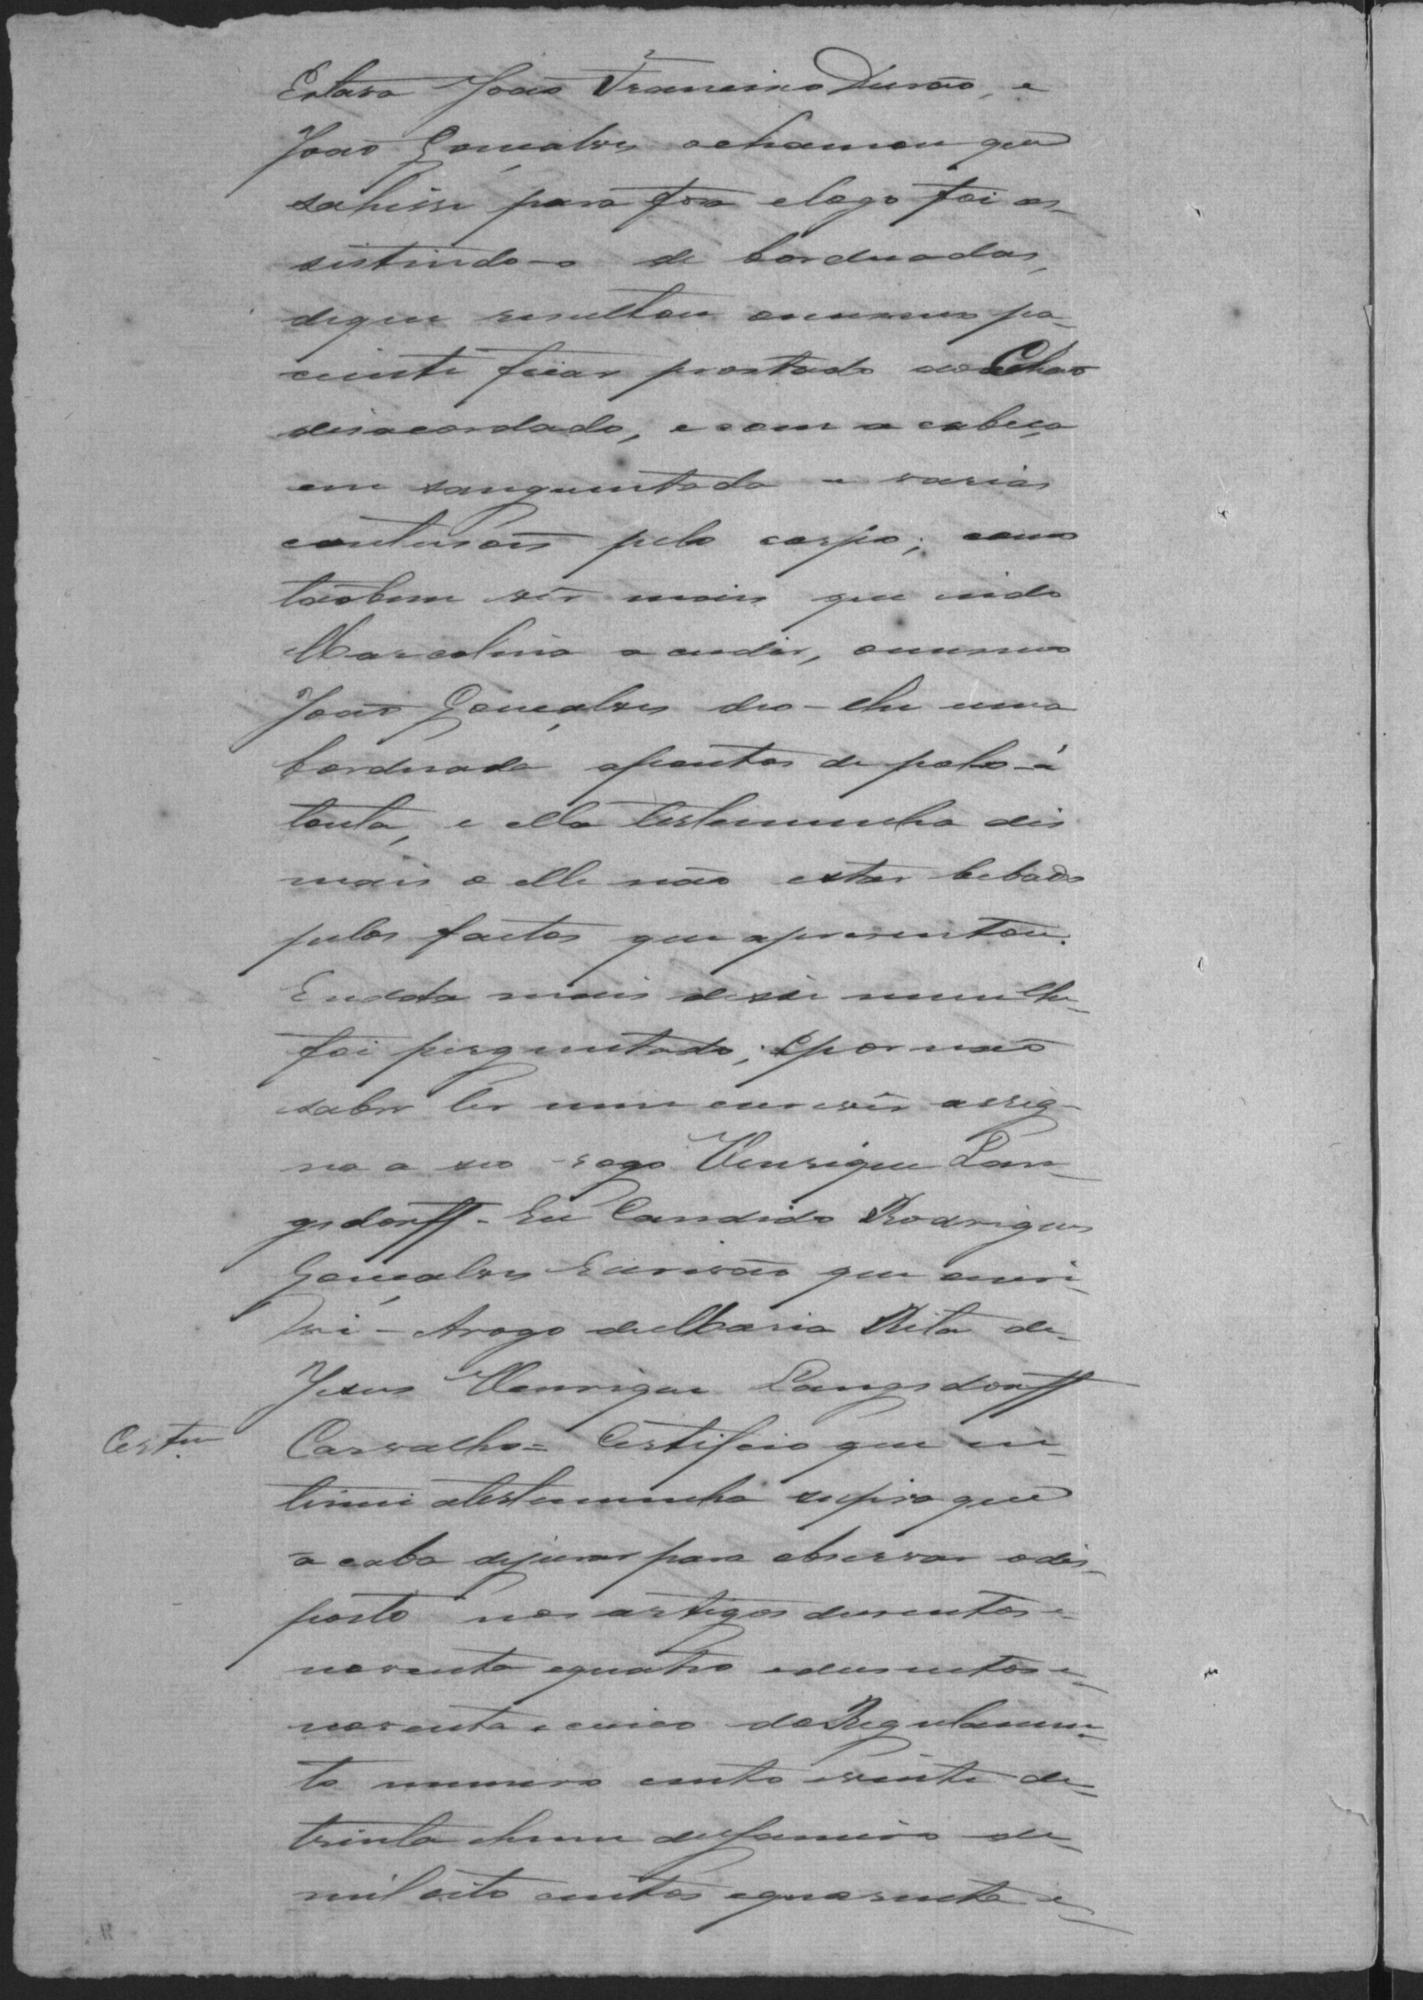 Estava João Francisco Durão, e
João Gonçalves o chamou que
sahisse para fora e logo foi as-
sistindo-o de borduadas,
de que resultou o mesmo pa-
ciente ficar prostado no Chão
desacordado, e com a cabeça
em sanguentada e varias
contusões pelo corpo; como
tãobem diz mais que indo
Marcolino a cudir, o mesmo
João Gonçalves deo-lhe uma
borduada apontos de polo-á
tonta, e ella testemunha dis
mais o elle não estar bebado
pelos factos que apresentou.
E nada mais disse nem lhe
foi perguntado; e por não
saber ler nem escrever assig-
na a seo rogo Henrique Lan-
gsdorff. Eu Candido Rodrigues
Gonçalves Escrivão que escri-
vi - Arogo de Maria Rita de-
Jesus Henrique Langsdorff
Cert.m
Carvalho = Certifico que in-
timei a testemunha supra que
a caba de jurar para observar o dis-
posto nos artigos dusentos e-
noventa e quatro e dusentos e-
noventa e cinco do Regulamen-
to numero cento e vinte de-
trinta e hum de Janeiro de-
mil oito centos e quarenta e-